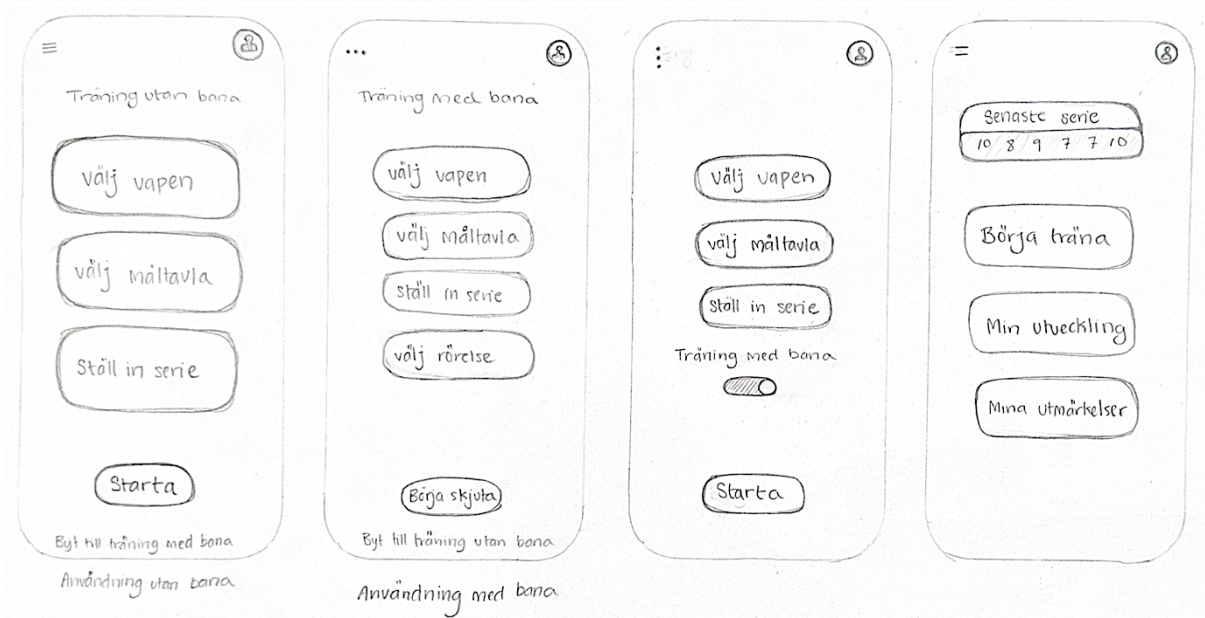 Träning utan bana
välj vapen
välj måltavla
Ställ in serie
Starta
Byt till träning med bana
Användning utan bana
Träning med bana
välj vapen
välj måltavla
Ställ in serie
välj rörelse
Börja skjuta
Byt till träning utan bana
Användning med bana
välj vapen
välj måltavla
Ställ in serie
Träning med bana
Starta
Senaste serie
10 8 9 7 7 10
Börja träna
Min utveckling
Mina utmärkelser